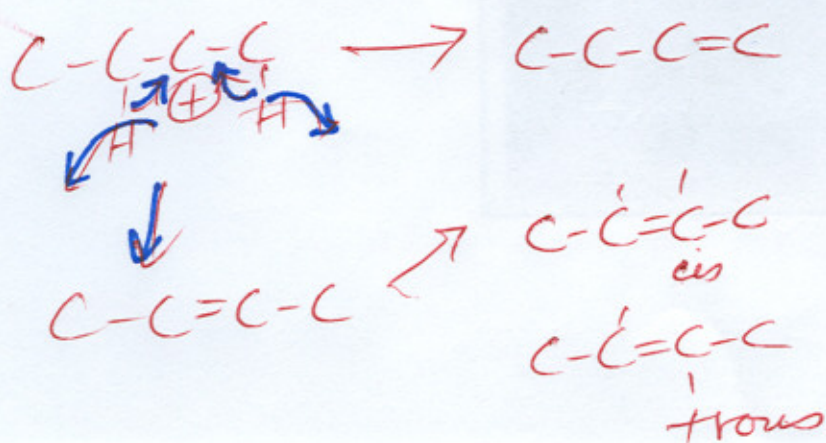 C-C-C-C → C-C-C=C
H ⊕ H
C-C=C-C
cis
C-C=C-C
C-C=C-C
trans